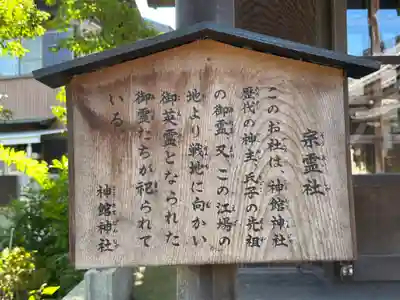 宗霊社
このお社は、神館神社
歴代の神主、氏子の先祖
の御霊、又、この江場の
地より戦地に向かい
御英霊となられた
御霊たちが祀られて
いる
神館神社